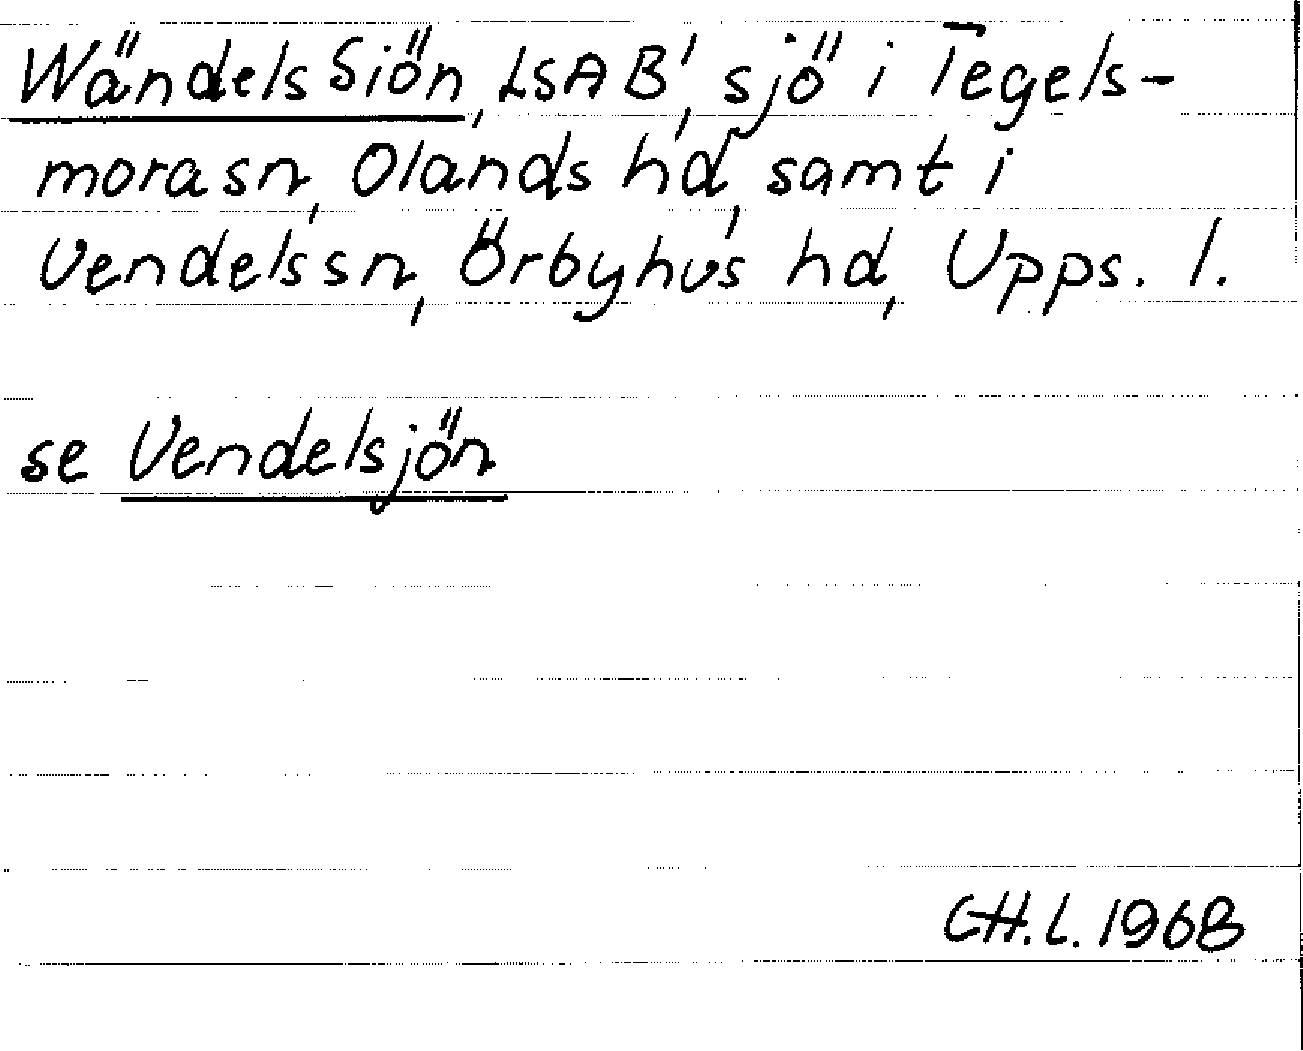 Wändels Siön, LSA B', sjö i Tegels-
mora sn, Olands hd, samt i
Vendels sn, Örbyhus hd, Upps. l.
se Vendelsjön
CH.L. 1968